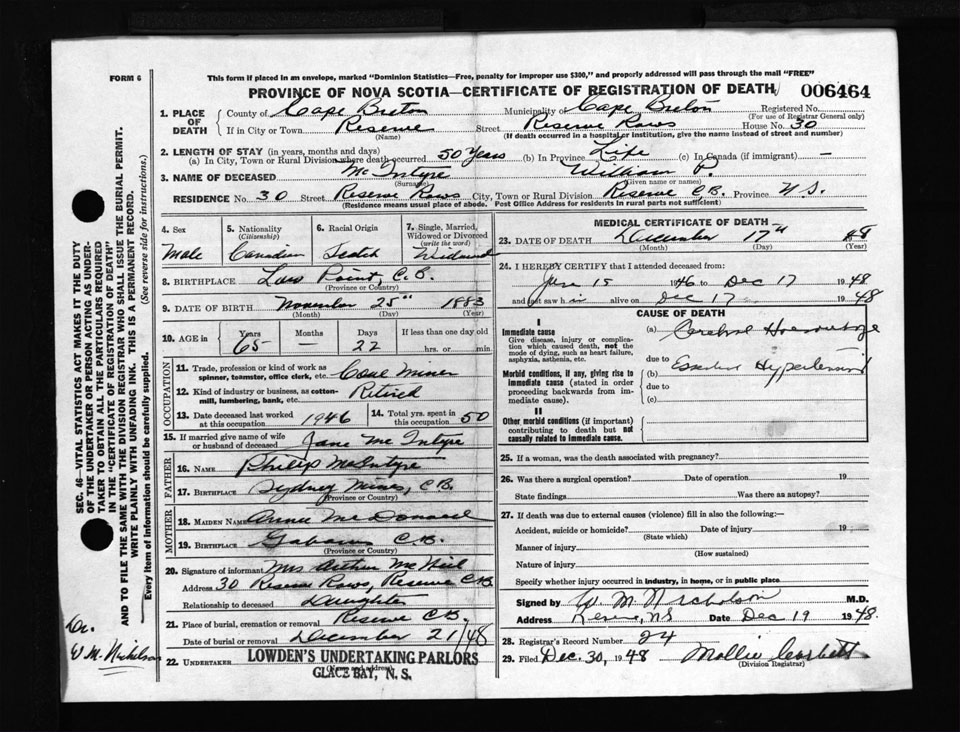 FORM 6
This form if placed in an envelope, marked "Dominion Statistics—Free, penalty for improper use $300," and properly addressed will pass through the mail "FREE"
PROVINCE OF NOVA SCOTIA—CERTIFICATE OF REGISTRATION OF DEATH 006464
1. PLACE OF DEATH County of Cape Breton Municipality of Cape Breton Registered No. (For use of Registrar General only)
If in City or Town Reserve (Name) Street Reserve Rows House No. 30
(If death occurred in a hospital or institution, give the name instead of street and number)
2. LENGTH OF STAY (in years, months and days)
(a) In City, Town or Rural Division where death occurred 50 Years (b) In Province Life (c) In Canada (if immigrant) —
3. NAME OF DECEASED Mc Intyre (Surname) William P. (Given name or names)
RESIDENCE No. 30 Street Reserve Rows City, Town or Rural Division Reserve C.B. Province N.S.
(Residence means usual place of abode. Post Office Address for residents in rural parts not sufficient)
4. Sex Male
5. Nationality (Citizenship) Canadian
6. Racial Origin Scotch
7. Single, Married, Widowed or Divorced (write the word) Widowed
8. BIRTHPLACE Low Point, C.B.
(Province or Country)
9. DATE OF BIRTH November 25th 1883
(Month) (Day) (Year)
10. AGE in Years 65 Months — Days 22 If less than one day old hrs. or min.
OCCUPATION
11. Trade, profession or kind of work as spinner, teamster, office clerk, etc. Coal Miner
12. Kind of industry or business, as cotton-mill, lumbering, bank, etc. Retired
13. Date deceased last worked at this occupation 1946
14. Total yrs. spent in this occupation 50
15. If married give name of wife or husband of deceased Jane Mc Intyre
FATHER
16. NAME Philip McIntyre
17. BIRTHPLACE Sydney Mines, C.B.
(Province or Country)
MOTHER
18. MAIDEN NAME Annie Mc Donald
19. BIRTHPLACE Gabarus C.B.
(Province or Country)
20. Signature of informant Mrs Arthur Mc Neil
Address 30 Reserve Rows, Reserve C.B.
Relationship to deceased Daughter
21. Place of burial, cremation or removal Reserve C.B.
Date of burial or removal December 21/48
22. UNDERTAKER LOWDEN'S UNDERTAKING PARLORS
GLACE BAY, N. S.
MEDICAL CERTIFICATE OF DEATH
23. DATE OF DEATH December 17th 48
(Month) (Day) (Year)
24. I HEREBY CERTIFY that I attended deceased from:
15 1946 to Dec 17 1948
and last saw him alive on Dec 17 1948
CAUSE OF DEATH
I
Immediate cause (a) Cerebral Hoemorrhage
Give disease, injury or complication which caused death, not the mode of dying, such as heart failure, asphyxia, asthenia, etc.
due to Essential Hypertension
Morbid conditions, if any, giving rise to immediate cause (stated in order proceeding backwards from immediate cause). (b)
due to
(c)
II
Other morbid conditions (if important) contributing to death but not causally related to immediate cause.
25. If a woman, was the death associated with pregnancy?
26. Was there a surgical operation? Date of operation 19
State findings Was there an autopsy?
27. If death was due to external causes (violence) fill in also the following:—
Accident, suicide or homicide? Date of injury 19
(State which)
Manner of injury
(How sustained)
Nature of injury
Specify whether injury occurred in industry, in home, or in public place
Signed by W M Nicholson M.D.
Address Reserve, NS Date Dec 19 1948
28. Registrar's Record Number 24
29. Filed Dec. 30, 1948 Mollie Corbett
(Division Registrar)
SEC. 46—VITAL STATISTICS ACT MAKES IT THE DUTY
OF THE UNDERTAKER OR PERSON ACTING AS UNDER-
TAKER TO OBTAIN ALL THE PARTICULARS REQUIRED
IN THE "CERTIFICATE OF REGISTRATION OF DEATH"
AND TO FILE THE SAME WITH THE DIVISION REGISTRAR WHO SHALL ISSUE THE BURIAL PERMIT.
WRITE PLAINLY WITH UNFADING INK. THIS IS A PERMANENT RECORD.
Every item of Information should be carefully supplied. (See reverse side for instructions.)
Dr.
W M. Nicholson